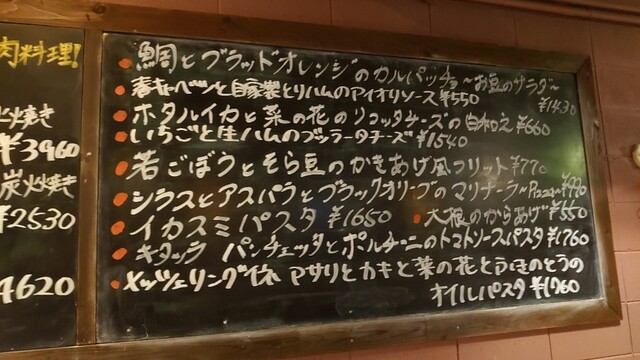 肉料理!
火焼き
¥3960
炭火焼き
¥2530
4620
鯛とブラッドオレンジのカルパッチョ〜お豆のサラダ〜
¥1430
春キャベツと自家製とりハムのアイオリソース ¥550
ホタルイカと菜の花のリコッタチーズの白和え ¥660
いちごと生ハムのブッラータチーズ ¥1540
若ごぼうとそら豆のかきあげ風フリット ¥770
シラスとアスパラとブラックオリーブのマリナーラ〜Pizza〜 ¥990
イカスミパスタ ¥1650
大根のからあげ ¥550
キタッラ パンチェッタとポルチーニのトマトソースパスタ ¥1760
メッツェリングイネ アサリとカキと菜の花とうほのとうの
オイルパスタ ¥1760